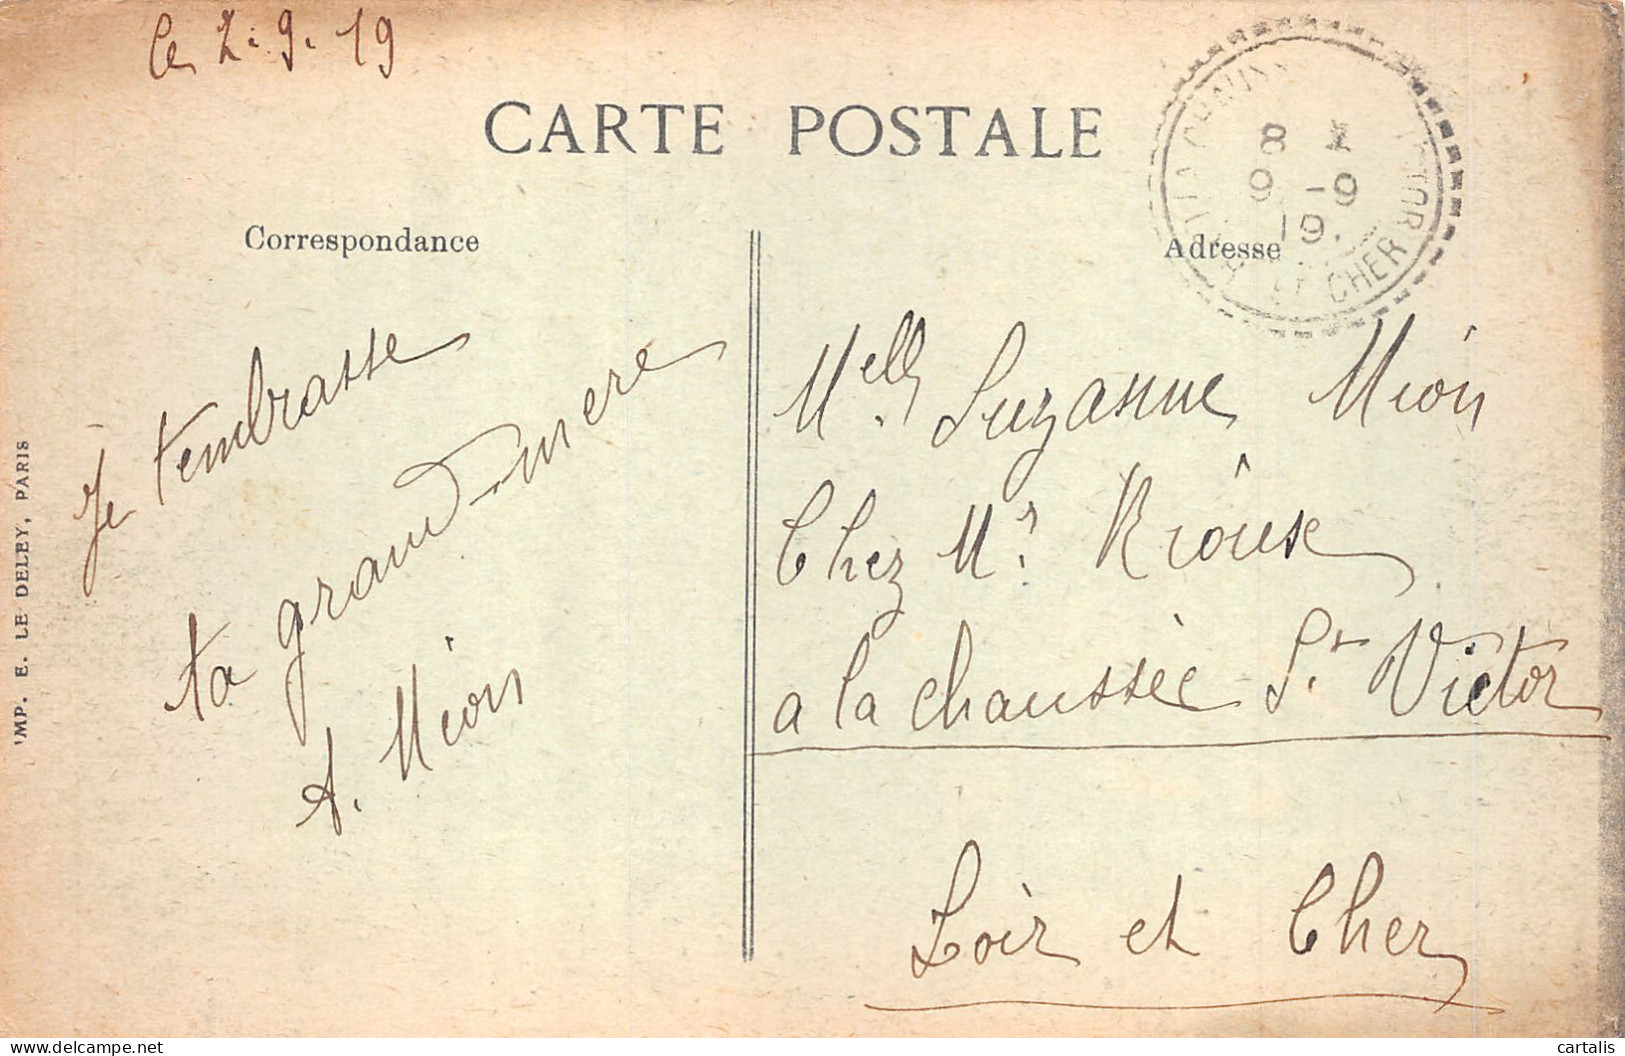 Ce 2.9.19
CARTE POSTALE
8
9 -9
19.
CHER
Correspondance
Adresse
Je tembrasse
ta grand-mere
A. Mion
Melle Suzanne Mion
Chez Mr
a la chaussée St Victor
Loir et Cher
IMP. E. LE DELEY, PARIS
cartalis